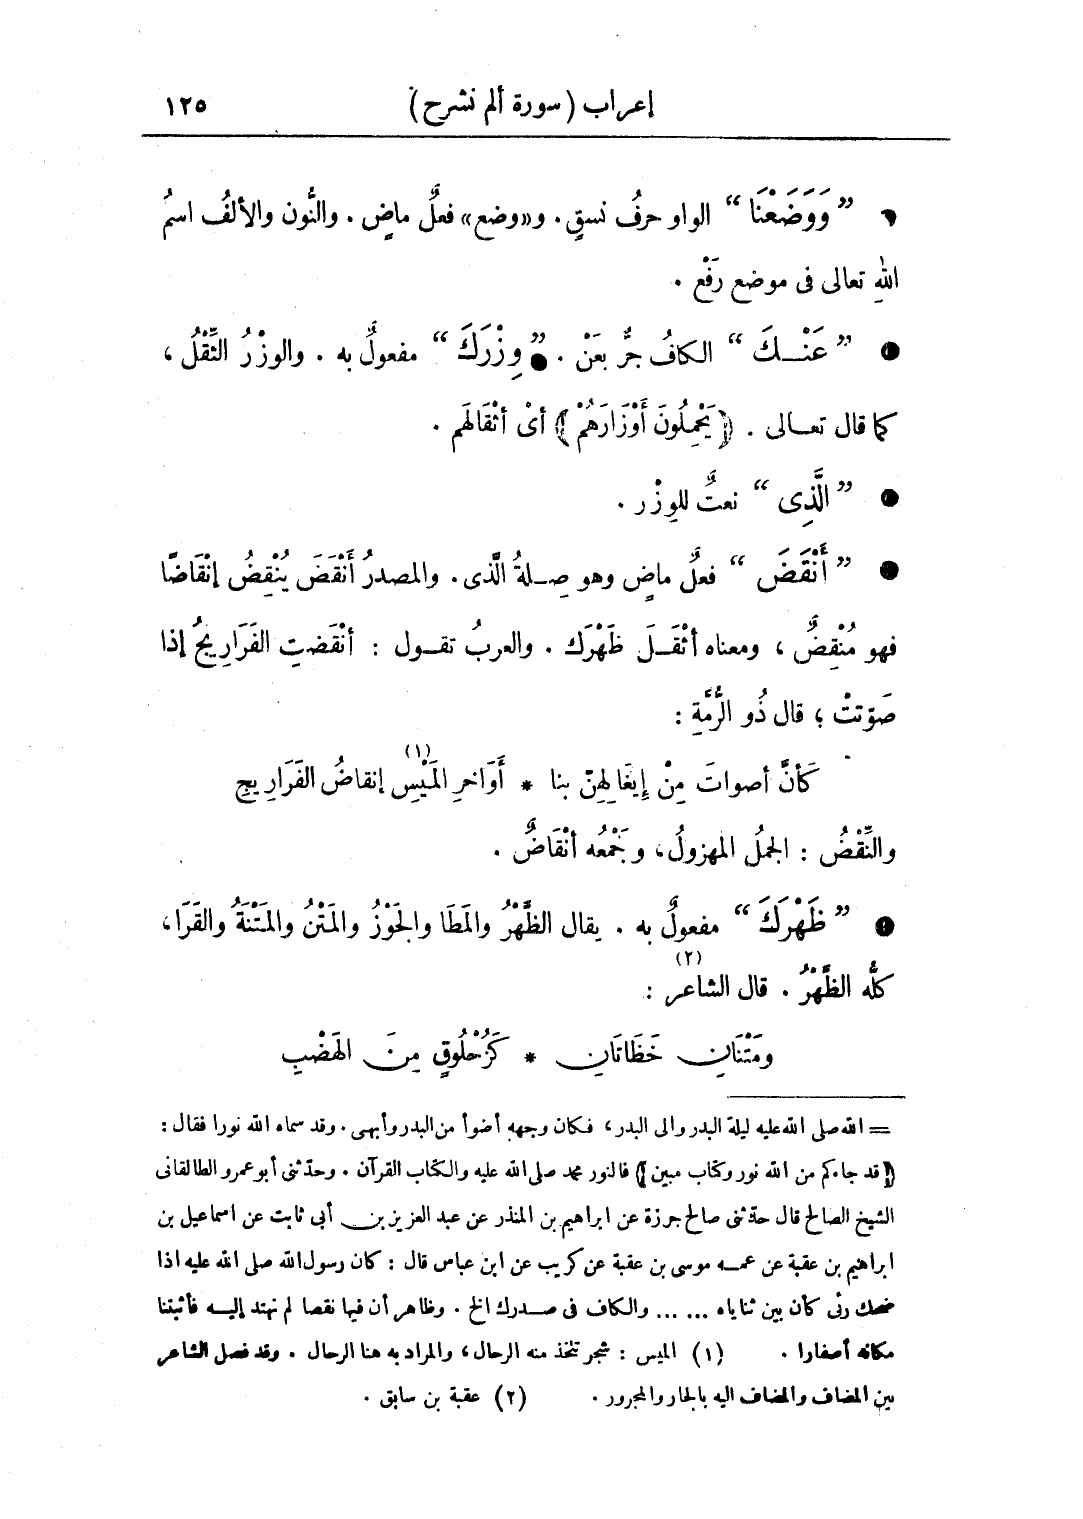 إعراب (سورة ألم نشرح) ١٢٥
• ”وَوَضَعْنَا“ الواو حرفُ نسقٍ. و«وضع» فعلٌ ماضٍ. والنُّون والألفُ اسمُ
اللهِ تعالى فى موضع رَفْعٍ.
• ”عَنْـكَ“ الكافُ جرٌّ بعَنْ. • ”وِزْرَكَ“ مفعولٌ به. والوِزْرُ الثِّقْلُ،
كما قال تعـالى. ﴿يَحْمِلُونَ أَوْزَارَهُمْ﴾ أىْ أثْقَالَهم.
• ”الَّذِى“ نعتٌ للوِزْر.
• ”أَنْقَضَ“ فعلٌ ماضٍ وهو صِـلةُ الَّذى. والمصدرُ أَنْقَضَ يُنْقِضُ إنْقَاضًا
فهو مُنْقِضٌ، ومعناه أثْقَـلَ ظَهْرَك. والعربُ تقـول : أنْقَضتِ الفَرَارِيجُ إذا
صَوّتتْ؛ قال ذُو الرُّمَّةِ :
كَأنَّ أصواتَ مِنْ إيغَالِهِنّ بنا * أَوَاخرِ المَيْسِ (١) إنقاضُ الفَرَارِيجِ
والنِّقْضُ : الجملُ المهزولُ، وجَمْعُه أنْقَاضٌ.
• ”ظَهْرَكَ“ مفعولٌ به. يقال الظَّهْرُ والمَطَا والجَوْزُ والمَتْنُ والمَتْنَةُ والقَرَا،
كلُّه الظَّهْرُ. قال الشاعر (٢) :
ومَتْنَانِ خَظَاتَانِ * كَزُحْلُوقٍ مِنَ الهَضْبِ
= الله صلى الله عليه ليلة البدر والى البدر، فـكان وجهه أضوأ من البدر وأبهى. وقد سماه الله نورا فقال :
﴿قد جاءكم من الله نور وكتاب مبين﴾ فالنور محمد صلى الله عليه والكتاب القرآن. وحدّثنى أبو عمرو الطالقانى
الشيخ الصالح قال حدّثنى صالح جرزة عن ابراهيم بن المنذر عن عبد العزيز بن أبى ثابت عن اسماعيل بن
ابراهيم بن عقبة عن عمـه موسى بن عقبة عن كريب عن ابن عباس قال : كان رسول الله صلى الله عليه اذا
ضحك رئى كأن بين ثناياه ... ... والكاف فى صـدرك الخ. وظاهر أن فيها نقصا لم نهتد إليـه فأثبتنا
مكانه أصفارا. (١) الميس : شجر تتخذ منه الرحال، والمراد به هنا الرحال. وقد فصل الشاعر
بين المضاف والمضاف اليه بالجار والمجرور. (٢) عقبة بن سابق.